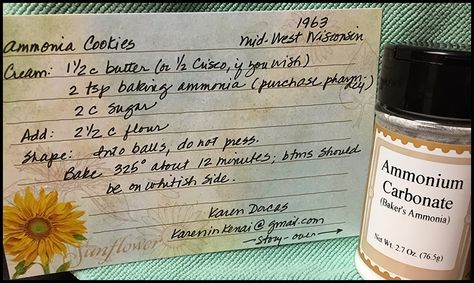 1963
Ammonia Cookies Mid-West Wisconsin
Cream: 1½ c butter (or ½ Crisco, if you wish)
2 tsp baking ammonia (purchase pharmacy)
2 c sugar
Add: 2½ c flour
Shape: Into balls, do not press.
Bake 325° about 12 minutes; btms should
be on whitish side.
Karen Dorcas
Kareninkenai@gmail.com
—Story-over→
Sunflower
Ammonium
Carbonate
(Baker's Ammonia)
Net Wt. 2.7 Oz. (76.5g)